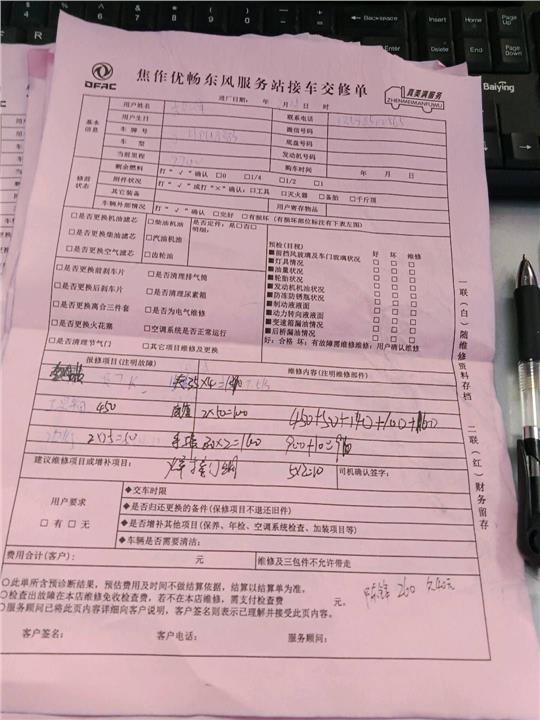 DFAC
焦作优畅东风服务站接车交修单
真美满服务
ZHENMEIMANFUWU
进厂日期: 年 月 日 时
基本信息
用户姓名 联系电话
用户生日 微信号码
车牌号 底盘号码
车型 发动机号码
当前里程 购车时间 年 月 日
修前状态
剩余燃料 打“√”确认 □0 □1/4 □1/2 □1
附件状况 打“√”或打“×”确认: □工具 □灭火器 □备胎 □千斤顶
其它装备 用户寄存物品
车辆外部情况 打“√”确认 □完好 □有损坏 (有损坏部位标注有下表左图)
□是否更换机油滤芯 □柴油机油 是否定件: 是□否□
□是否更换柴油滤芯 □汽油机油 明细:
□是否更换空气滤芯 □齿轮油
□是否更换前刹车片 □是否清理排气筒
□是否更换后刹车片 □是否清理尿素箱
□是否更换离合三件套 □是否为电气维修
□是否更换火花塞 □空调系统是否正常运行
□是否清理节气门 □其它项目维修及更换
预检(目视) 好 坏 维修
■前挡风玻璃及车门玻璃状况 □ □ □
■灯具情况 □ □ □
■油量状况 □ □ □
■轮胎状况 □ □ □
■发动机机油状况 □ □ □
■防冻防锈瓶状况 □ □ □
■制动液液面 □ □ □
■动力转向液液面 □ □ □
■变速箱漏油情况 □ □ □
■后桥漏油情况 □ □ □
好: 合格 坏: 有故障需维修维修: 用户确认维修
报修项目(注明故障) 维修内容(注明维修部件)
35×4=140
450 2×50=100 450+50+140+100+160
2×25=50 80×2=160 900+10=910
建议维修项目或增补项目: 5×2=10 司机确认签字:
用户要求
□有 □无
◆交车时限
◆是否归还更换的备件(保修项目不退还旧件)
◆是否增补其他项目(保养、年检、空调系统检查、加装项目等)
◆车辆是否需要清洁:
费用合计(客户): 元 维修及三包件不允许带走
○此单所含预诊断结果,预估费用及时间不做结算依据,结算以结算单为准。
○检查出故障在本店维修免收检查费,若不在本店维修,需支付检查费 元。
○服务顾问已将此页内容详细向客户说明,客户签名则表示已理解并接受此页内容。
260
客户签名: 客户电话: 服务顾问:
一联(白)随维修资料存档
二联(红)财务留存
Backspace
Insert
Home
Page Up
Enter
Delete
End
Page Down
Baiying